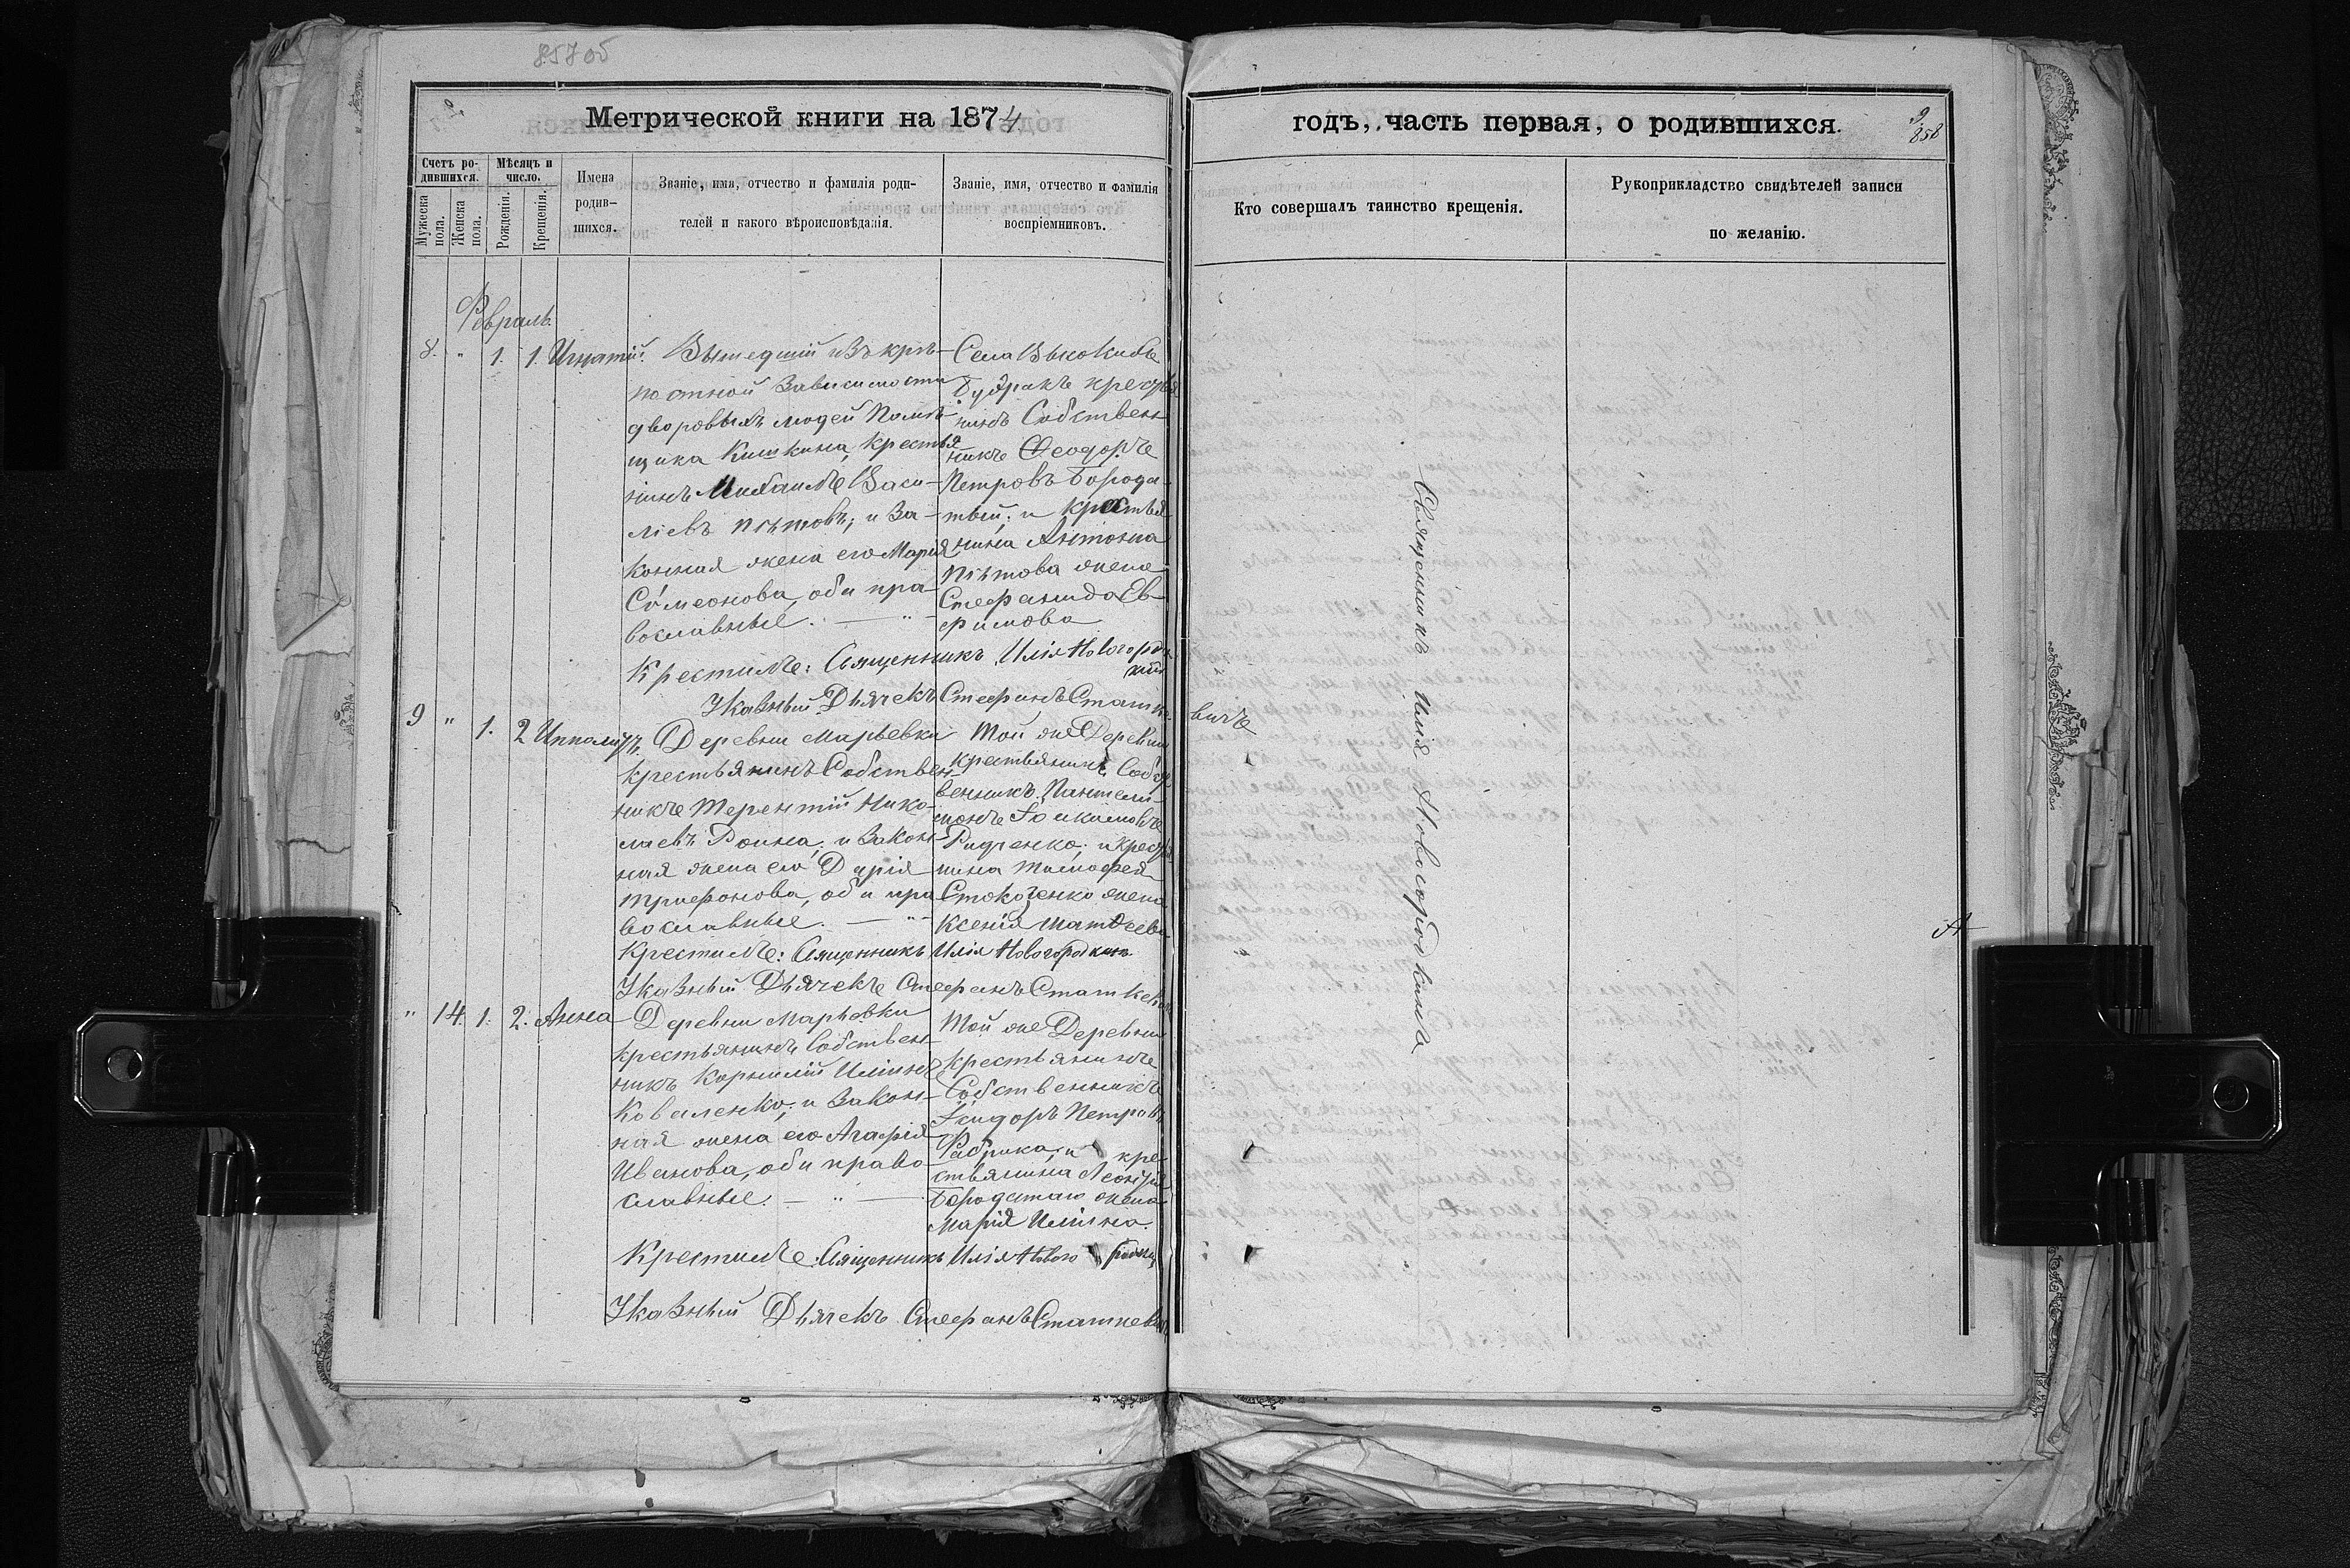 857 об
Метрической книги на 1874
годъ, часть первая, о родившихся.
9.
858
Счетъ ро-
дившихся.
Мужеска
пола.
Женска
пола.
Мѣсяцъ и
число.
Рожденія.
Крещенія.
Имена
родив-
шихся.
Званіе, имя, отчество и фамилія роди-
телей и какого вѣроисповѣданія.
Званіе, имя, отчество и фамилія
воспріемниковъ.
Кто совершалъ таинство крещенія.
Рукоприкладство свидѣтелей записи
по желанію.
Февраль
8. " 1. 1. Игнатій.
Вышедшій изъ крѣ-
постной зависимости
дворовыхъ людей Помѣ-
щика Кишкина, Крестья
нинъ Михаилъ Васи-
ліевъ Пѣтовъ; и за-
конная жена его Марія
Сѵмеонова, оба пра-
вославные. — "
Села
Будракъ крестья
нинъ Собствен
никъ Ѳеодоръ
Петровъ Борода-
тый; и крестья
нина Антона
Пѣтова жена
Стефанида Ев-
фимова
Крестилъ: Священникъ Илія Новогород
кинъ
Указный Дьячекъ Стефанъ Сташке-
вичъ
9 " 1. 2 Ипполитъ.
Деревни Марьевки
крестьянинъ Собствен-
никъ Терентій Нико-
лаевъ Роина, и закон-
ная жена его Дарія
Трифонова, оба пра
вославные. — "
Той же Деревни
крестьянинъ Собст
венникъ Пантели-
монъ Іоакимовъ
Ридченко; и крестья
нина Тимофея
Стокоченко жена
Ксенія Матѳеева
Крестилъ: Священникъ Илія Новогородкинъ
Указный Дьячекъ Стефанъ Сташкевич
" 14. 1. 2. Анна
Деревни Марьевки
крестьянинъ Собствен-
никъ Корнилій Иліинъ
Коваленко; и закон-
ная жена его Агафія
Иванова, оба право-
славные. — " —
Той же Деревни
Крестьянинъ
Собственникъ
Ісидоръ Петровъ
Фабрика, и кре-
стьянина Леонтія
Бородатаго жена
Марія Иліина.
Крестилъ Священникъ Илія Новогородкин
Указный Дьячекъ Стефанъ Сташкевич
Священникъ Илія Новогородкинъ